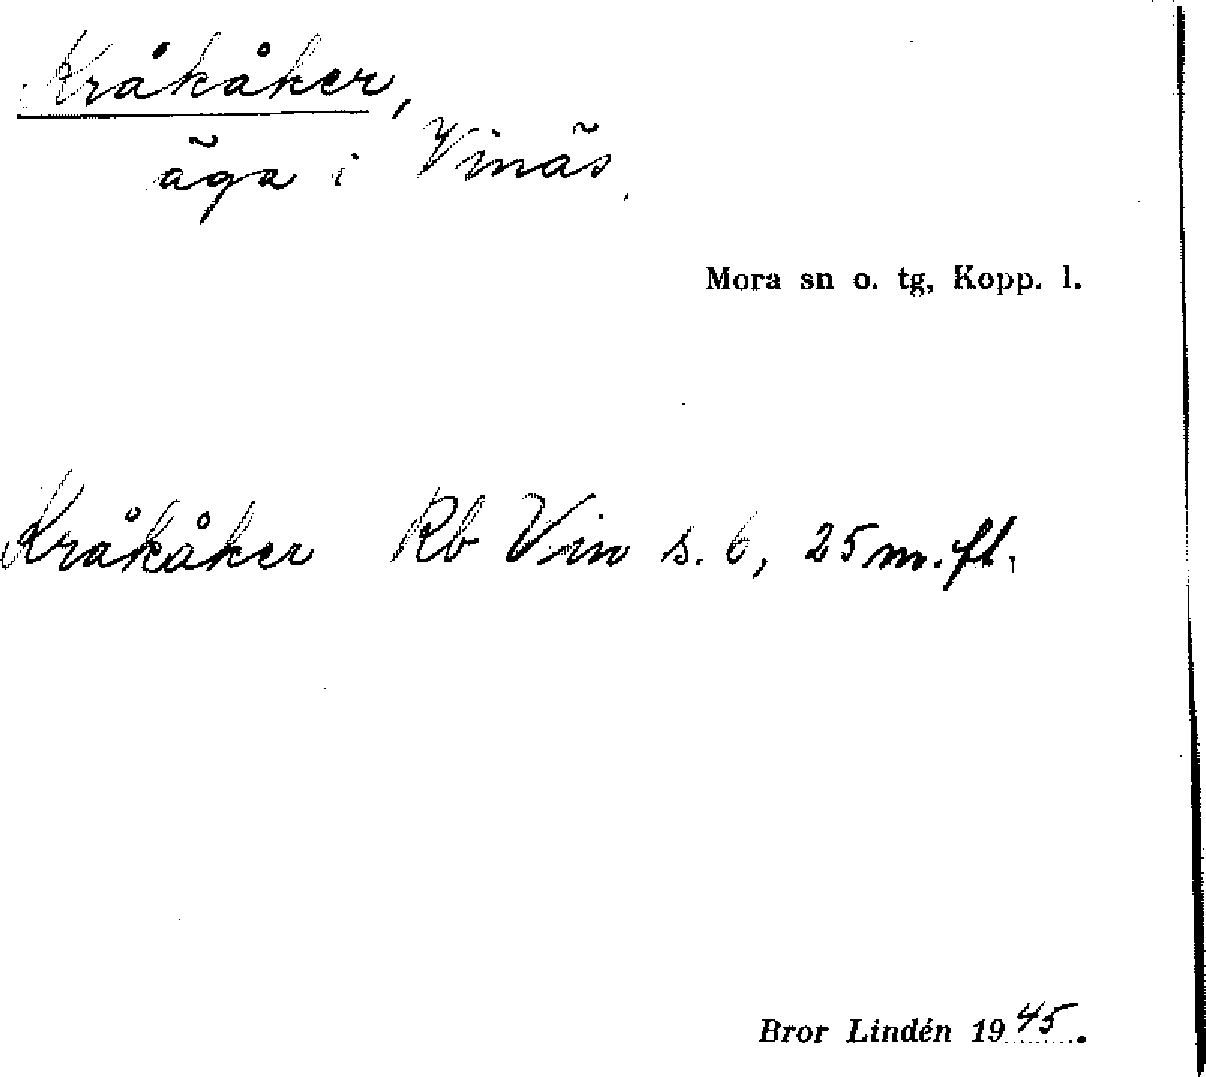 Kråkåker,
äga i Vinäs.
Mora sn o. tg, Kopp. l.
Kråkåker Rb Vin s. 6, 25 m. fl.
Bror Lindén 1945.